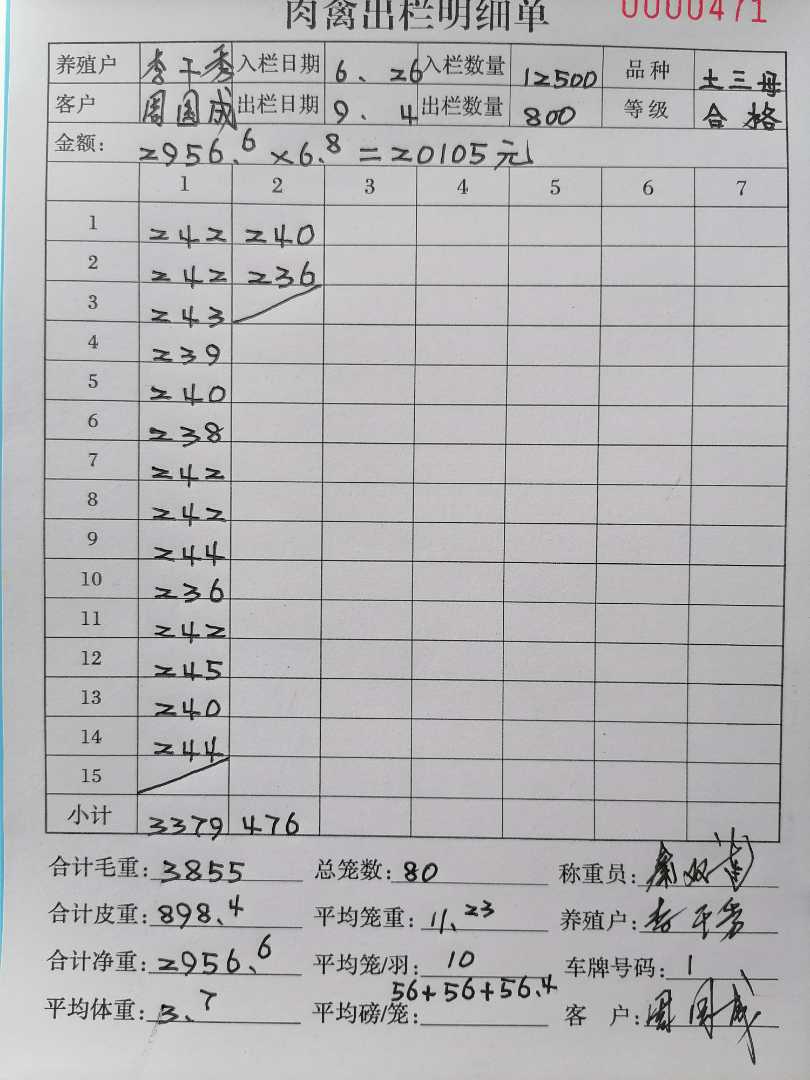 肉禽出栏明细单 0000471
养殖户 李干秀 入栏日期 6、26 入栏数量 12500 品种 土三母
客户 周国成 出栏日期 9、4 出栏数量 800 等级 合格
金额: 2956.6×6.8=20105元
1 2 3 4 5 6 7
1 242 240
2 242 236
3 243
4 239
5 240
6 238
7 242
8 242
9 244
10 236
11 242
12 245
13 240
14 244
15
小计 3379 476
合计毛重: 3855 总笼数: 80 称重员:
合计皮重: 898.4 平均笼重: 11.23 养殖户:
合计净重: 2956.6 平均笼/羽: 10 车牌号码: 1
平均体重: 3.7 平均磅/笼: 56+56+56.4 客 户: 周国成